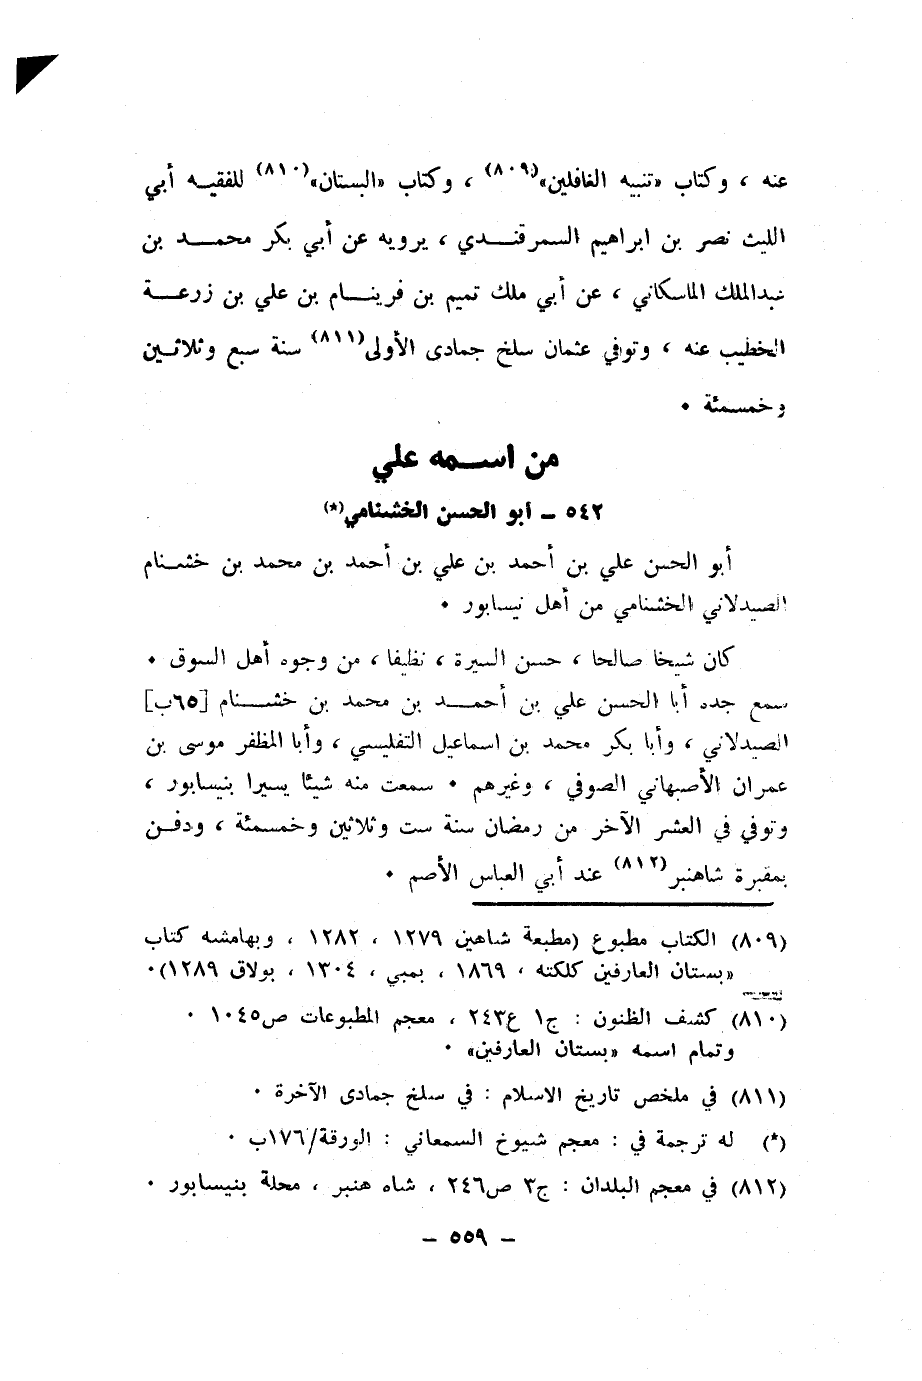 عنه ، وكتاب «تنبيه الغافلين»(٨٠٩) ، وكتاب «البستان»(٨١٠) للفقيـه أبي
الليث نصر بن ابراهيم السمرقنـدي ، يرويه عن أبي بكر محمـد بن
عبدالملك الماسكاني ، عن أبي ملك تميم بن فرينـام بن علي بن زرعـة
الخطيب عنه ، وتوفي عثمان سلخ جمادى الأولى(٨١١) سنة سبع وثلاثـين
وخمسمئة ٠
من اسـمه علي
٥٤٢ ــ أبو الحسن الخشنامي(*)
أبو الحسن علي بن أحمد بن علي بن أحمد بن محمد بن خشـنام
الصيدلاني الخشنامي من أهل نيسابور ٠
كان شيخا صالحا ، حسن السيرة ، نظيفا ، من وجوه أهل السوق ٠
سمع جده أبا الحسن علي بن أحمـد بن محمد بن خشـنام [٦٥ب]
الصيدلاني ، وأبا بكر محمد بن اسماعيل التفليسي ، وأبا المظفر موسى بن
عمران الأصبهاني الصوفي ، وغيرهم ٠ سمعت منه شيئا يسيرا بنيسابور ،
وتوفي في العشر الآخر من رمضان سنة ست وثلاثين وخمسمئة ، ودفـن
بمقبرة شاهنبر(٨١٢) عند أبي العباس الأصم ٠
(٨٠٩) الكتاب مطبوع (مطبعة شاهين ١٢٧٩ ، ١٢٨٢ ، وبهامشه كتاب
«بستان العارفين كلكته ، ١٨٦٩ ، بمبي ، ١٣٠٤ ، بولاق ١٢٨٩)٠
(٨١٠) كشف الظنون : ج١ ع٢٤٣ ، معجم المطبوعات ص١٠٤٥ ٠
وتمام اسمه «بستان العارفين» ٠
(٨١١) في ملخص تاريخ الاسلام : في سلخ جمادى الآخرة ٠
(*) له ترجمة في : معجم شيوخ السمعاني : الورقة/١٧٦ب ٠
(٨١٢) في معجم البلدان : ج٣ ص٢٤٦ ، شاه هنبر ، محلة بنيسابور ٠
ــ ٥٥٩ ــ